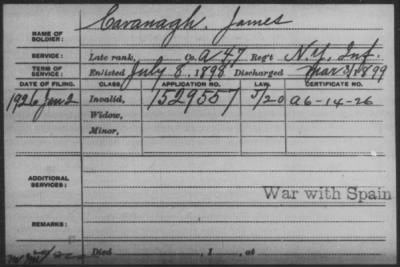 NAME OF SOLDIER: Cavanagh, James
SERVICE: Late rank, Co. A 47 Reg't N.Y. Inf.
TERM OF SERVICE: Enlisted July 8, 1898 Discharged Mar 31, 1899
DATE OF FILING. CLASS. APPLICATION NO. LAW. CERTIFICATE NO.
1926 Jun 2 Invalid, 1529557 5/20 A 6-14-26
Widow,
Minor,
ADDITIONAL SERVICES:
War with Spain
REMARKS:
Died , 1 , at